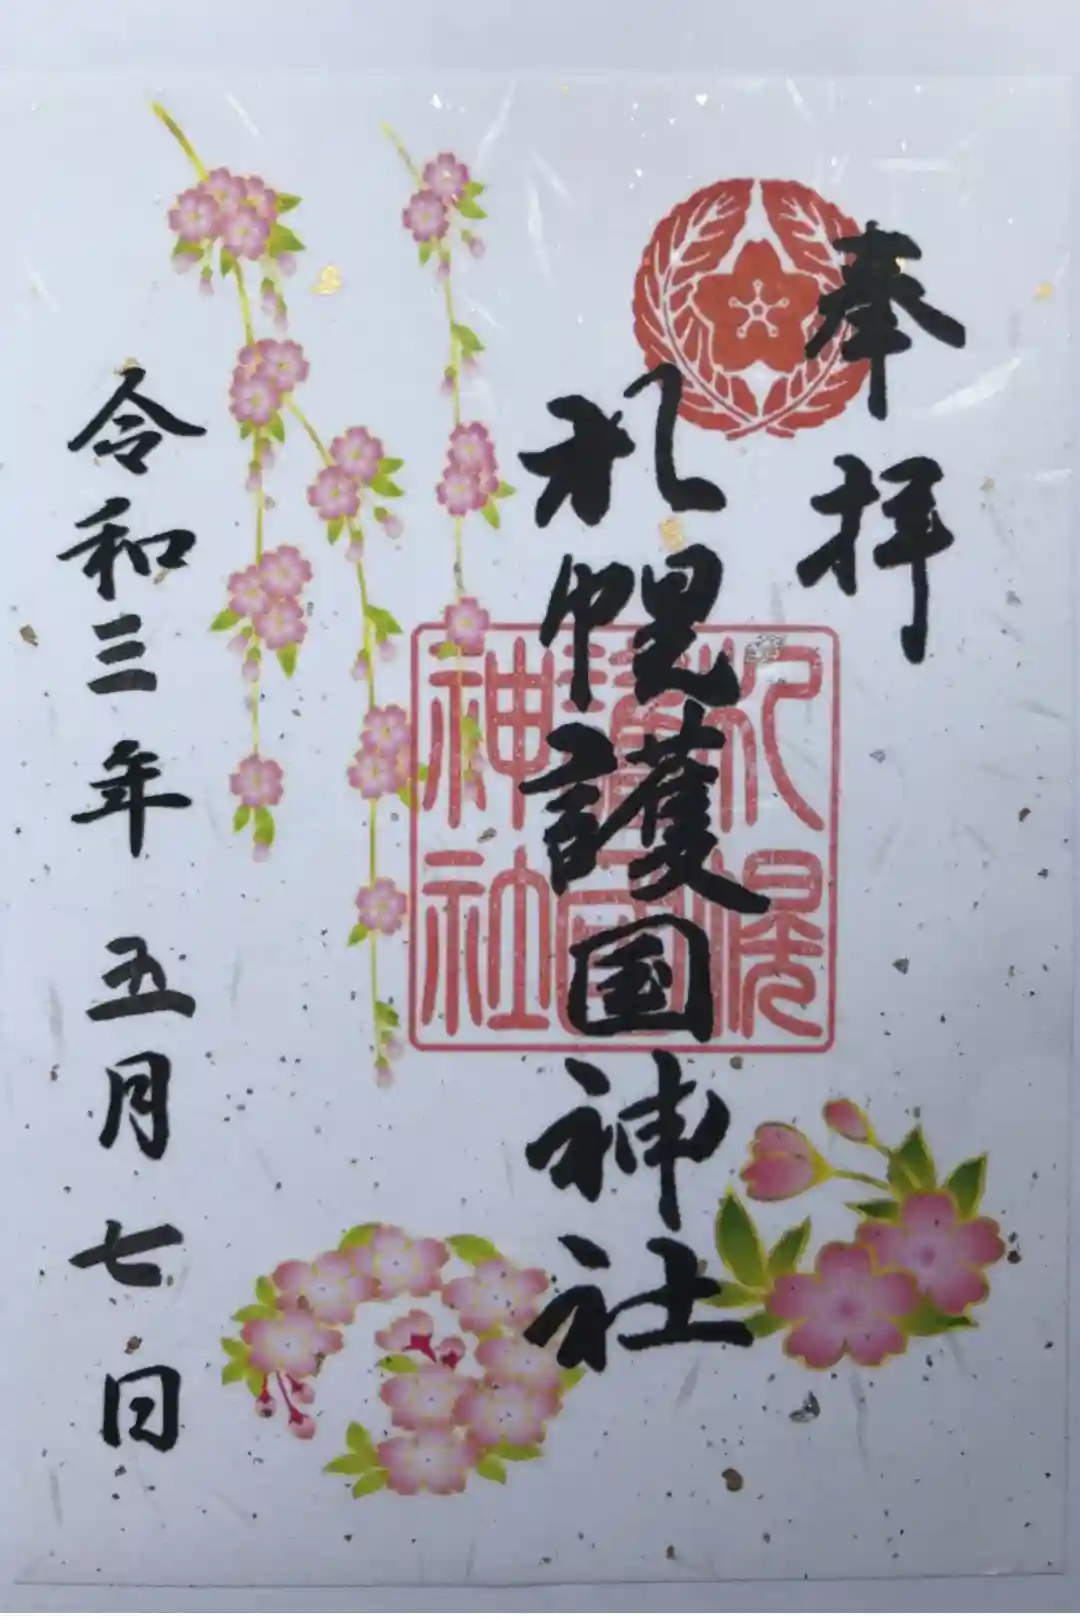 奉拝
札幌護国神社
令和三年 五月七日
札幌
護國
神社